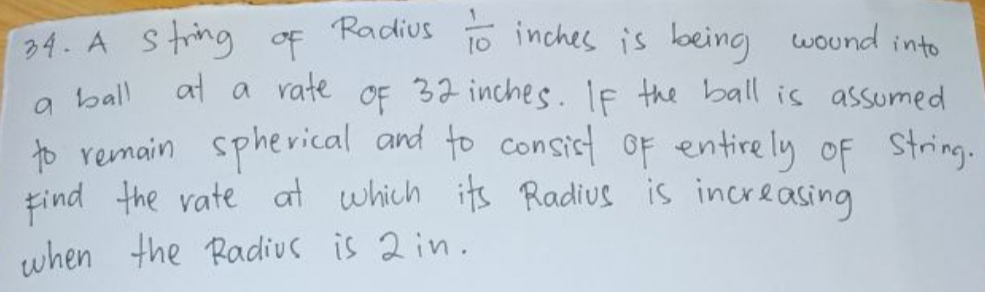 34. A string of Radius 1/10 inches is being wound into
a ball at a rate of 32 inches. If the ball is assumed
to remain spherical and to consist of entirely of String.
Find the rate at which its Radius is increasing
when the Radius is 2 in.